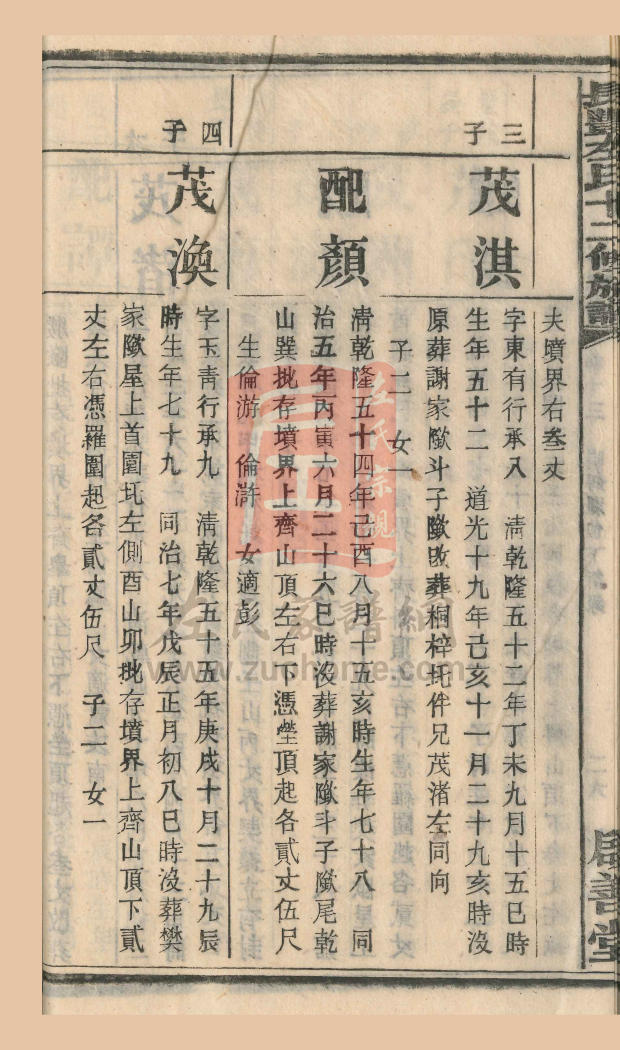 夫墳界右叁丈
三子
茂淇
字東有行承八　清乾隆五十二年丁未九月十五巳時
生年五十二　道光十九年己亥十一月二十九亥時沒
原葬謝家
斗子
改葬桐梓
件兄茂渚左同向
子二　女一
配顏
清乾隆五十四年己酉八月十五亥時生年七十八　同
治五年丙寅六月二十六巳時沒葬謝家
斗子
尾乾
山巽
存墳界上齊山頂左右下憑塋頂起各貳丈伍尺
生倫游　倫滸　女適彭
四子
茂渙
字玉青行承九　清乾隆五十五年庚戌十月二十九辰
時生年七十九　同治七年戊辰正月初八巳時沒葬樊
家
屋上首園
左側酉山卯
存墳界上齊山頂下貳
丈左右憑羅圍起各貳丈伍尺　子二　女一
左氏十二修族譜
善堂
左氏宗親
左氏家譜網
www.zuohome.com